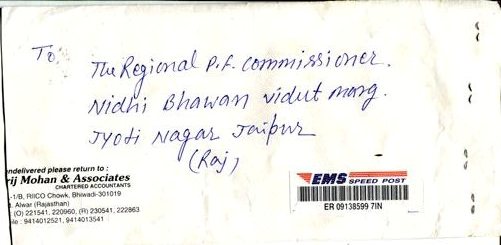 To,
The Regional P.f. commissioner.
Nidhi Bhawan vidut marg.
Jyoti Nagar Jaipur
(Raj)
ndelivered please return to :
rij Mohan & Associates
CHARTERED ACCOUNTANTS
-1/B, RIICO Chowk, Bhiwadi-301019
t. Alwar (Rajasthan)
(O) 221541, 220960, (R) 230541, 222863
ile : 9414012521, 9414013541
EMS
SPEED POST
ER 09138599 7IN